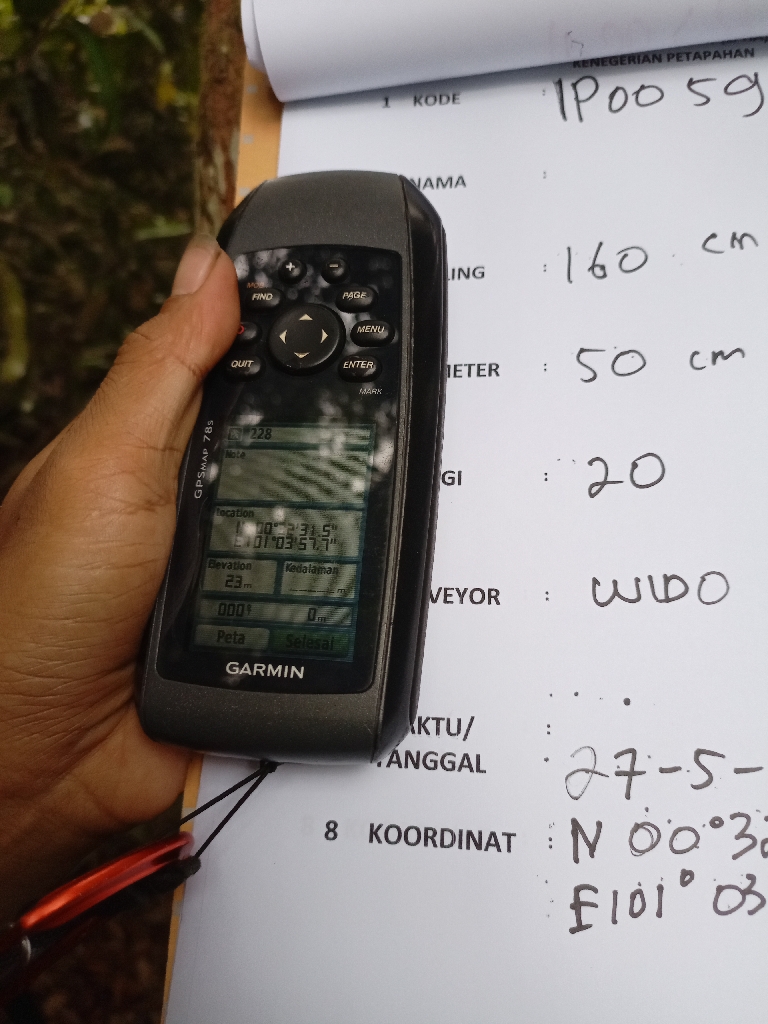 KENEGERIAN PETAPAHAN
1 KODE : IP00 59
NAMA :
LING : 160 cm
METER : 50 cm
GI : 20
VEYOR : WIDO
AKTU/
TANGGAL : 27-5-
8 KOORDINAT : N 00°32
E101° 03
MOB
FIND
PAGE
MENU
QUIT
ENTER
MARK
GPSMAP 78s
228
Note
Location
N 00°32'31.5"
E101°03'57.7"
Elevation
Kedalaman
23m
m
0m
Peta
Selesai
GARMIN